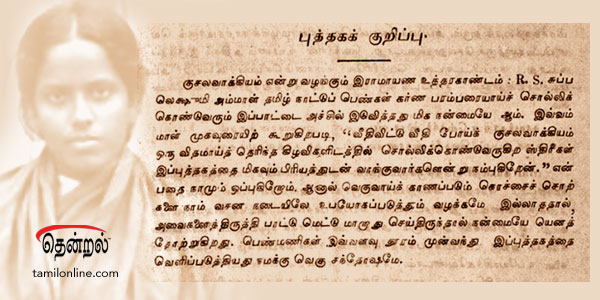 புத்தகக் குறிப்பு.
குசலவாக்கியம் என்று வழங்கும் இராமாயண உத்தரகாண்டம் : R. S. சுப்ப
லெக்ஷுமி அம்மாள் தமிழ் நாட்டுப் பெண்கள் கர்ண பரம்பரையாய்ச் சொல்லிக்
கொண்டுவரும் இப்பாட்டை அச்சில் இவித்தது மிக நன்மையே ஆம். இவ்வம்
மாள் முகவுரையிற் கூறுகிறபடி, "வீதிவிட்டு வீதி போய்க் குசலவாக்கியம்
ஒரு விதமாய்த் தெரிந்த கிழவிகளிடத்தில் சொல்லிக்கொண்டுவெருகிற ஸ்திரீகள்
இப்புத்தகத்தை மிகவும் பிரியத்துடன் வாங்குவார்களென்று நம்புகிறேன்." என்
பதை நாமும் ஒப்புகிறோம். ஆனால் வெகுவாய்க் காணப்படும் கொச்சைச் சொற்
களை நாம் வசன நடையிலே உபயோகப்படுத்தும் வழக்கமே இல்லாததால்,
அவைகளைத்திருத்தி பாட்டு மெட்டு மாறாது செய்திருந்தால் நன்மையே யெனத்
தோற்றுகிறது. பெண்மணிகள் இவ்வளவு தூரம் முன்வந்து இப்புத்தகத்தை
வெளிப்படுத்தியது நமக்கு வெகு சந்தோஷமே.
தென்றல்
tamilonline.com